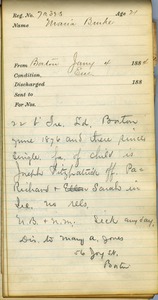 Reg. No. 72333 Age 21
Name Maria Burke
From Boston Jany 4 1884
Condition,
Discharged 188
Sent to
For Nos.
22 b Ire. Ed, Boston
June 1876 and there since
Single fa. of child is
Joseph Fitzpatrick of. Pa-
Richard & Sarah in
Ire. no rels,
N.B. & N.M. Sick any day.
Dis. to Mary A. Jones
56 Joy St.
Boston